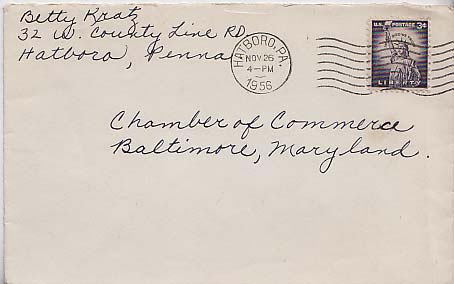 Betty Kratz
32 W. County Line RD.
Hatboro, Penna
HATBORO, PA.
NOV 26
4-PM
1956
U.S. POSTAGE 3¢
LIBERTY
Chamber of Commerce
Baltimore, Maryland.